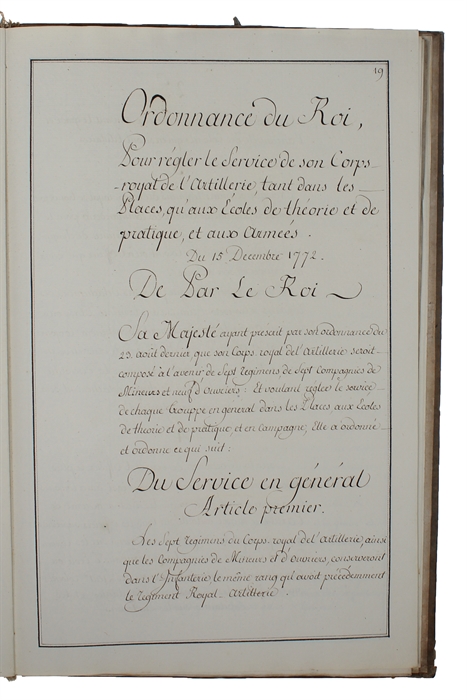 19
Ordonnance du Roi,
Pour régler le Service de son Corps
royal de l'Artillerie, tant dans les
Places, qu'aux Ecolés de théorie et de
pratique, et aux Armées.
Du 15 Decembre 1772.
De Par Le Roi
Sa Majesté ayant prescrit par son ordonnance du
23 août dernier que son Corps royal de l'Artillerie seroit
composé à l'avenir de Sept Regimens de Sept Compagnies de
Mineurs et neuf d'Ouvriers: Et voulant regler le service
de chaque Trouppe en general dans les Places aux Ecoles
de theorie et de pratique, et en Campagne, Elle a ordonné
et ordonne ce qui suit:
Du Service en général
Article premier.
Les Sept Regimens du Corps-royal de l'Artillerie, ainsi
que les Compagnies de Mineurs et d'Ouvriers, conserveront
dans l'Infanterie le même rang qu'avoit précédemment
le Regiment Royal-Artillerie.